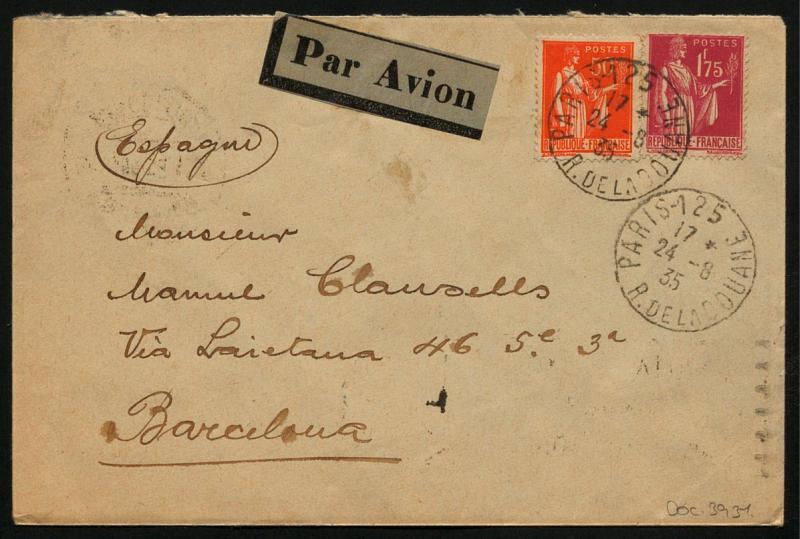 Par Avion
POSTES
REPUBLIQUE-FRANÇAISE
POSTES
1f75
REPUBLIQUE-FRANÇAISE
PARIS-125
17 *
24 -8
35
R. DE LA DOUANE
Espagne
PARIS-125
17 *
24 -8
35
R. DE LA DOUANE
Monsieur
Manuel Clausells
Via Laietana 46 5.e 3a
Barcelona
Doc. 3931.